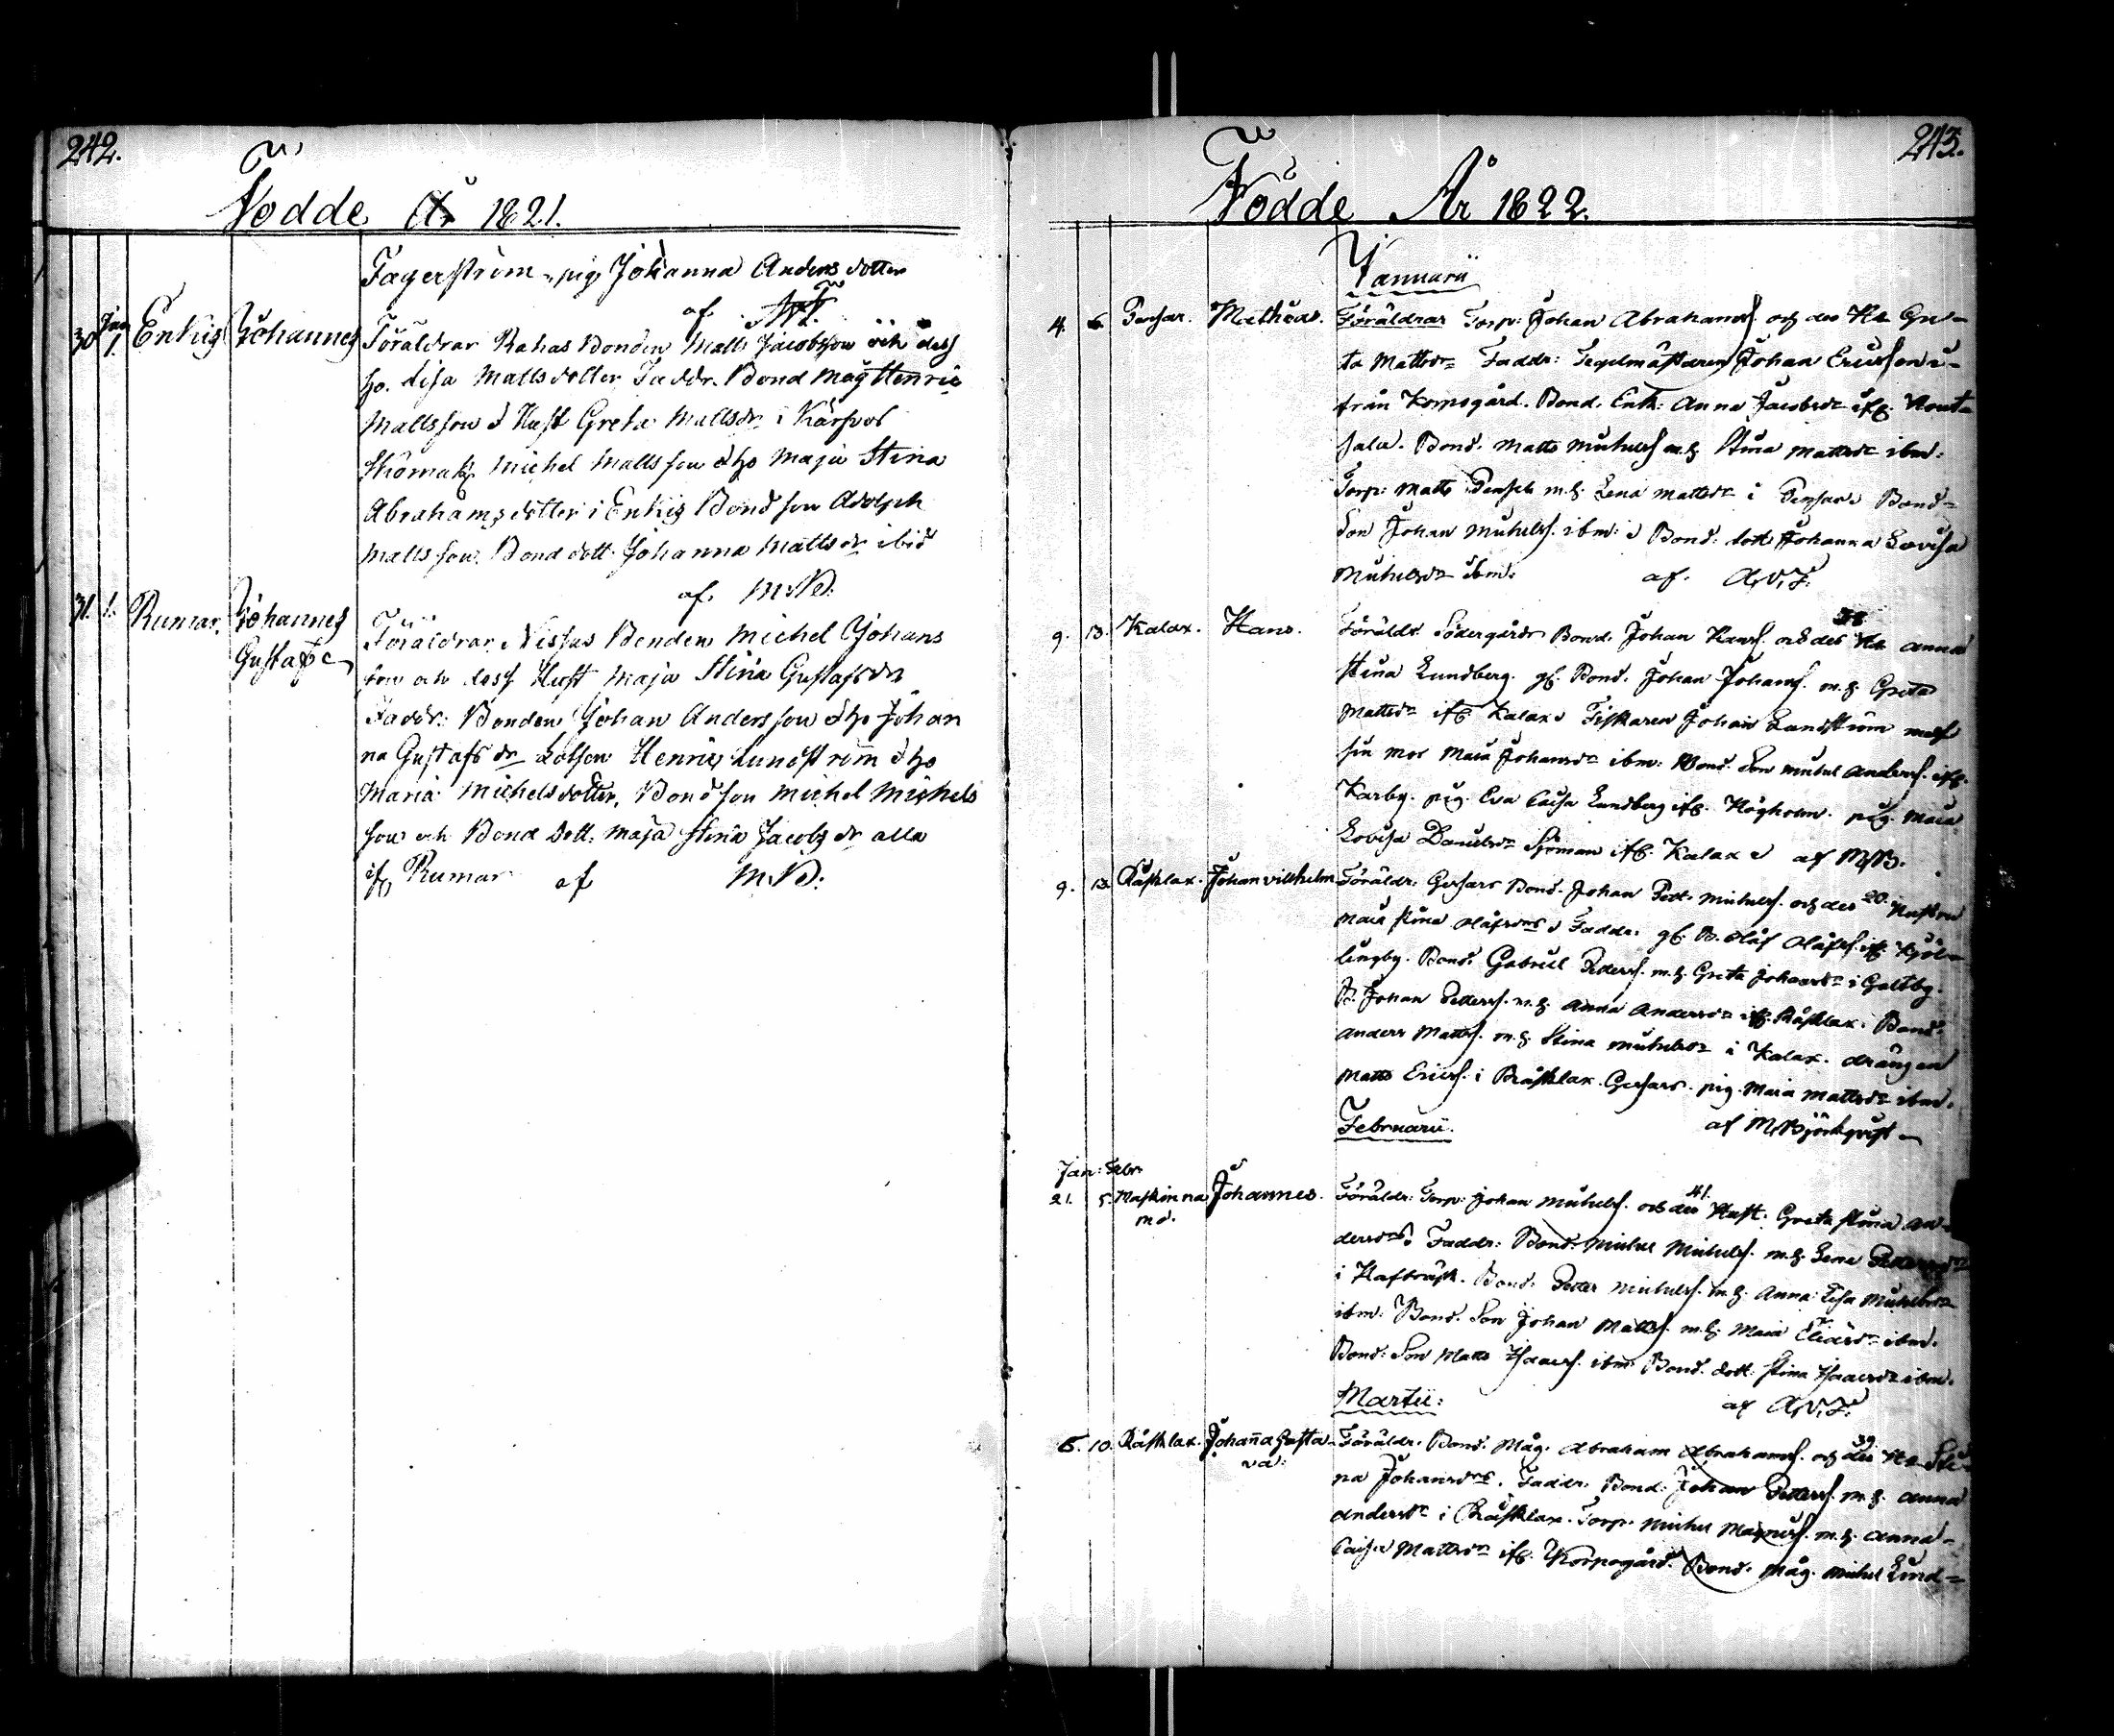 242.
Födde År 1821.
Fagerström, pig. Johanna Andersdotter
af
30 Jan 1. Enkis Johannes Föräldrar Rahas Bonden Matts Jacobsson och dess
ho. Lisa Mattsdotter Faddr. Bond Måg Henric
Mattsson & Hust Greta Mattsdr i Kårpol
Michel Mattsson & ho Maja Stina
Abrahamsdotter i Enkis Bondson Adolph
Mattsson. Bond dott. Johanna Mattsdr ibid
af. M.N.B.
31. 1. Rumar. Johannes Föräldrar Nissas Bonden Michel Johans
Gustaf son och dess Hust Maja Stina Gustafsdr
Faddr: Bonden Johan Andersson & ho Johan
na Gustafsdr Lotsen Henric Lundström & ho
Maria Michelsdotter, Bondson Michel Michels
son och Bond Dott. Maja Stina Jacobsdr alla
if Rumar af M.N.B:
243.
Födde År 1822.
Januarii
4. 6. Pensar. Mathias. Föräldrar Torp: Johan Abrahamss och des Ho Gre-
ta Mattsdr Faddr: Tegelmästaren Johan Ericsson
från Korpogård. Bond. Enk: Anna Jacobsdr if. Nout
sala. Bond. Matts Michelss m.h. Stina Mattsdr ibm:
Torp: Matts m.h. Lena Mattsdr i Pensar Bond-
Son Johan Michelss. ibm: Bond: dott Johanna Lovisa
Michelsdr ibm. af. A.V.F.
9. 13. Kalax. Hans. Föräldr. Södergårds Bond. Johan Hanss. och des Ho Anna
Stina Lundberg. gf. Bond. Johan Johanss. m.h. Greta
Mattsdr if. Kalax Fiskaren Johan Landström med
sin mor Maia Johansdr ibm: Bond. Son Michel Anderss. if.
Karby. pig. Eva Caisa Lundberg if. Högholm. pig. Maia
Lovisa Danielsdr Sjöman if. Kalax af M.B.
9. 13. Råsklax. Johan Vilhelm Föräldr. Gersars Bond. Johan Pett. Michelss. och des 20. Hustru
Maia Stina Olafsdr Faddr. gf. B. Olaf Olafss. if. Kjöl-
lingby. Bond. Gabriel Peterss. m.h. Greta Johansdr i Galtby.
B. Johan Petterss. m.h. Anna Andersdr if. Råsklax. Bond.
Anders Mattss. m.h. Stina Michelsdr i Kalax. drängen
Matts Ericss. i Råsklax. Gersars. pig. Maia Mattsdr ibm.
Februarii. af M. Björkqvist
Jan: Febr.
21. 5. Johannes. Föräldr: Torp: Johan Michelss. och des 41. Hust. Greta Stina An-
dersdr. Faddr: Bond: Michel Michelss. m.h. Lena
i Kaftråsk. Bond. Petter Michelss. m.h. Anna Lisa Michelsdr
ibm: Bond. Son Johan Mattss. m.h. Maia Eliasdr ibm.
Bond: Son Matts Isacss. ibm. Bond. dott. Stina Isacsdr ibm.
Martii: af A.V.F:
6. 10. Råsklax. Johanna Gusta- Föräldr. Bond. Måg. Abraham Abrahamss. och des 39 Ho Sti-
va: na Johansdr. Faddr. Bond: Johan Petterss. m.h. Anna
Andersdr i Råsklax. Torp. Michel Magnuss. m.h. Anna-
Caisa Mattsdr if. Korpogård. Bond. Måg. Michel Lind-